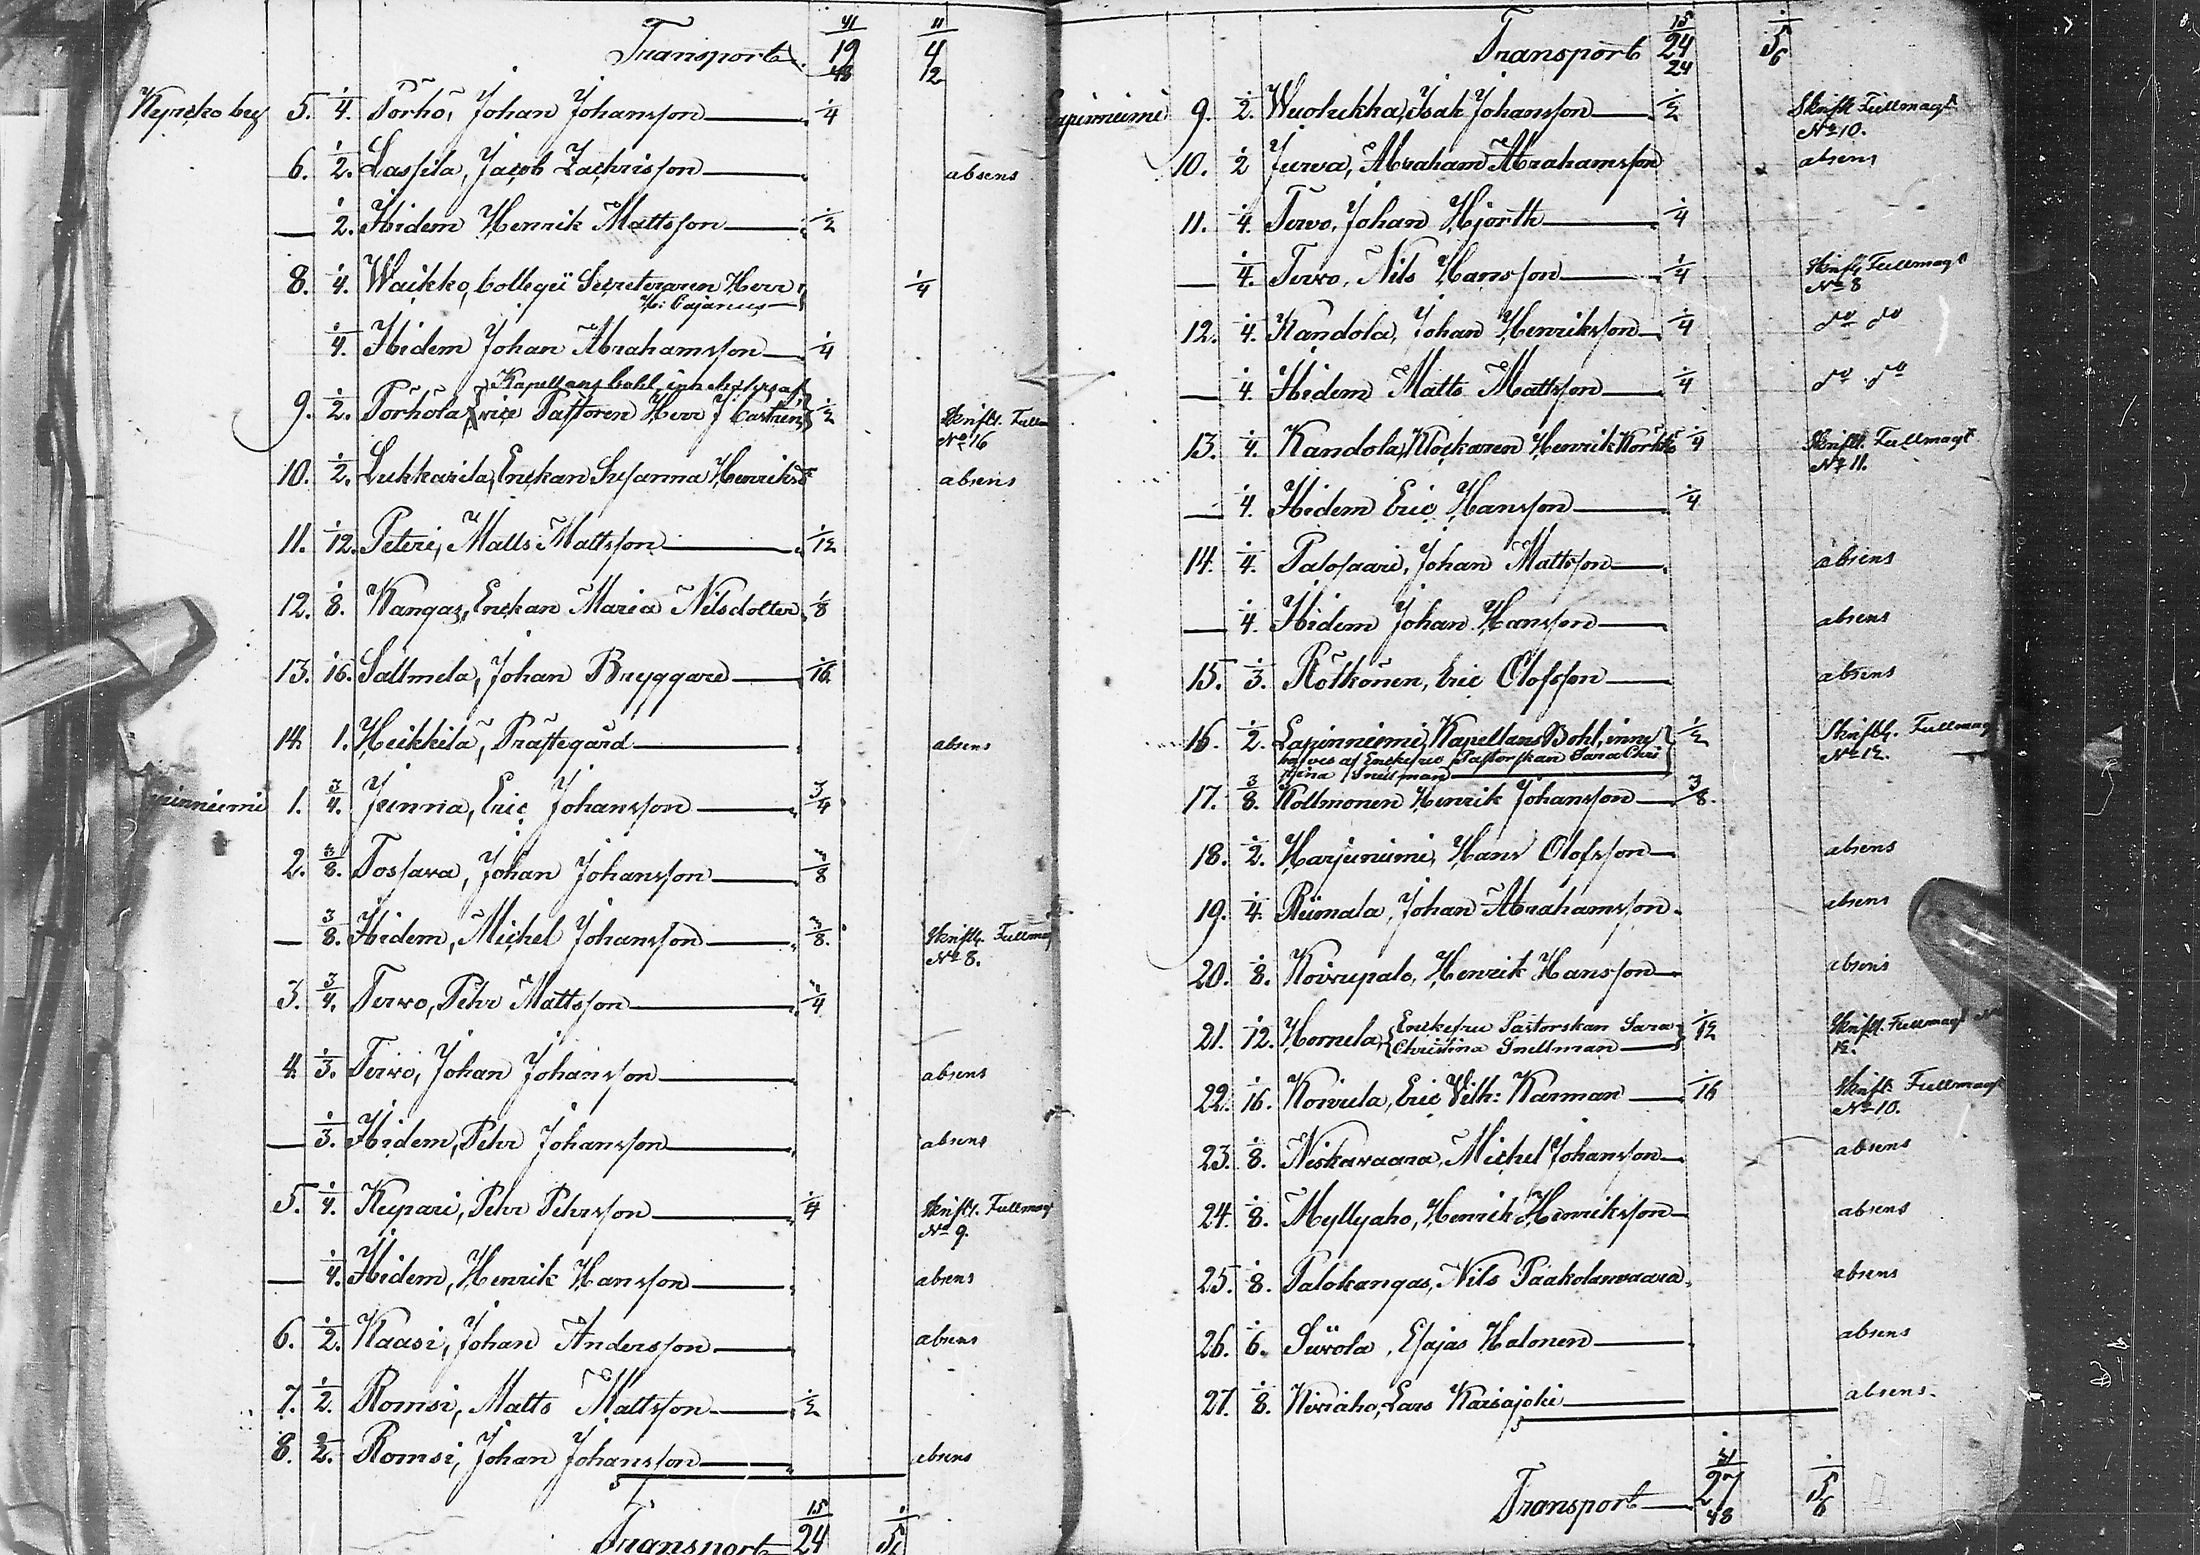 Transport 41/48 19 11/12 4
Kyrcko by 5. 1/4. Pörhö, Johan Johansson 1/4
6. 1/2. Lassila, Jacob Zachrisson absens
— 1/2. Ibidem Henrik Mattsson 1/2
8. 1/4. Waikko, Collegii Secreteraren Herr 1/4
H: Cajanus
1/4. Ibidem Johan Abrahamsson 1/4
Kapellans bohl, innehafves af
9. 1/2. Pörhölä vice Pastoren Herr J Castrein 1/2 Skriftl. Fullm
No 16
10. 1/2. Lukkarila, Enckan Susanna Henriksdr absens
11. 1/12. Peteri, Matts Mattsson 1/12
12. 1/8. Kangas, Enckan Maria Nilsdotter 1/8
13. 1/16. Sallmela, Johan Bryggare 1/16.
14. 1. Heikkilä, Prästegård absens
pinniemi 1. 3/4. Jinna, Eric Johansson 3/4
2. 3/8. Tossava, Johan Johansson 3/8
— 3/8. Ibidem, Michel Johansson 3/8. Skriftl. Fullma
No 8.
3. 3/4. Tervo, Pehr Mattsson 3/4
4. 1/3. Tervo, Johan Johansson absens
— 1/3. Ibidem, Pehr Johansson absens
5. 1/4. Kupari, Pehr Pehrsson 1/4 Skriftl. Fullmag
No 9.
— 1/4. Ibidem, Henrik Hansson absens
6. 1/2. Kaasi, Johan Andersson absens
7. 1/2. Romsi, Matts Mattsson 1/2
8. 1/2. Romsi, Johan Johansson absens
Transport 15 24 5
Transport 15/24 24 1/6 5
apinniemi 9. 1/2. Wuolukka, Isak Johansson 1/2 Skriftl Fullmagt
No 10.
10. 1/2 Jurva, Abraham Abrahamsson absens
11. 1/4. Tervo, Johan Hjorth 1/4
— 1/4. Tervo, Nils Hansson 1/4 Skriftl Fullmagt
No 8
12. 1/4. Kandola, Johan Henriksson 1/4 do do
— 1/4. Ibidem Matts Mattsson 1/4 do do
13. 1/4. Kandola, Klockaren Henrik Körkö 1/4 Skriftl. Fullmagt
No 11.
— 1/4. Ibidem Eric Hansson 1/4
14. 1/4. Palosaari, Johan Mattsson absens
— 1/4. Ibidem Johan Hansson absens
15. 1/3. Rötkönen, Eric Olofsson absens
16. 1/2. Lapinniemi, Kapellans Bohl, inne 1/2 Skriftl. Fullmag
hafves af Enckefru Pastorskan Sara Chri No 12.
stina Snellman
17. 3/8. Kollmonen Henrik Johansson 3/8.
18. 1/2. Harjuniemi, Hans Olofsson absens
19. 1/4. Riimala, Johan Abrahamsson absens
20. 1/8. Koivupalo, Henrik Hansson absens
21. 1/12. Hornela, Enckefru Pastorskan Sara 1/12 Skriftl. Fullmagt No
Christina Snellman 12.
22. 1/16. Koivula, Eric Wilh: Karman 1/16 Skriftl. Fullmagt
No 10.
23. 1/8. Niskavaara, Michel Johansson absens
24. 1/8. Myllyaho, Henrik Henriksson absens
25. 1/8. Palokangas, Nils Pääkolanvaara absens
26. 1/6. Siirola, Esajas Halonen absens
27. 1/8. Kiviaho, Lars Kaisajoki absens
Transport 31/48 27 1/6 5